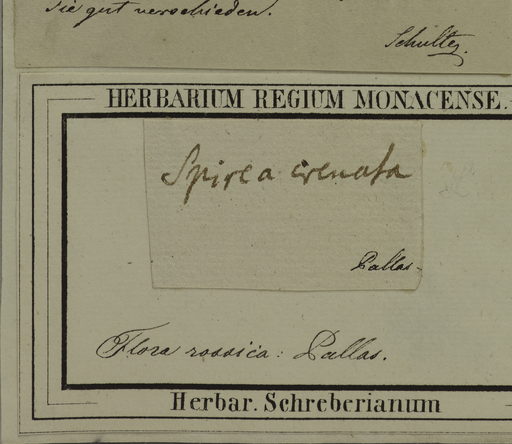 Sie gut verschieden.
Schultes
HERBARIUM REGIUM MONACENSE.
Spirea crenata
Pallas.
Flora rossica: Pallas.
Herbar. Schreberianum